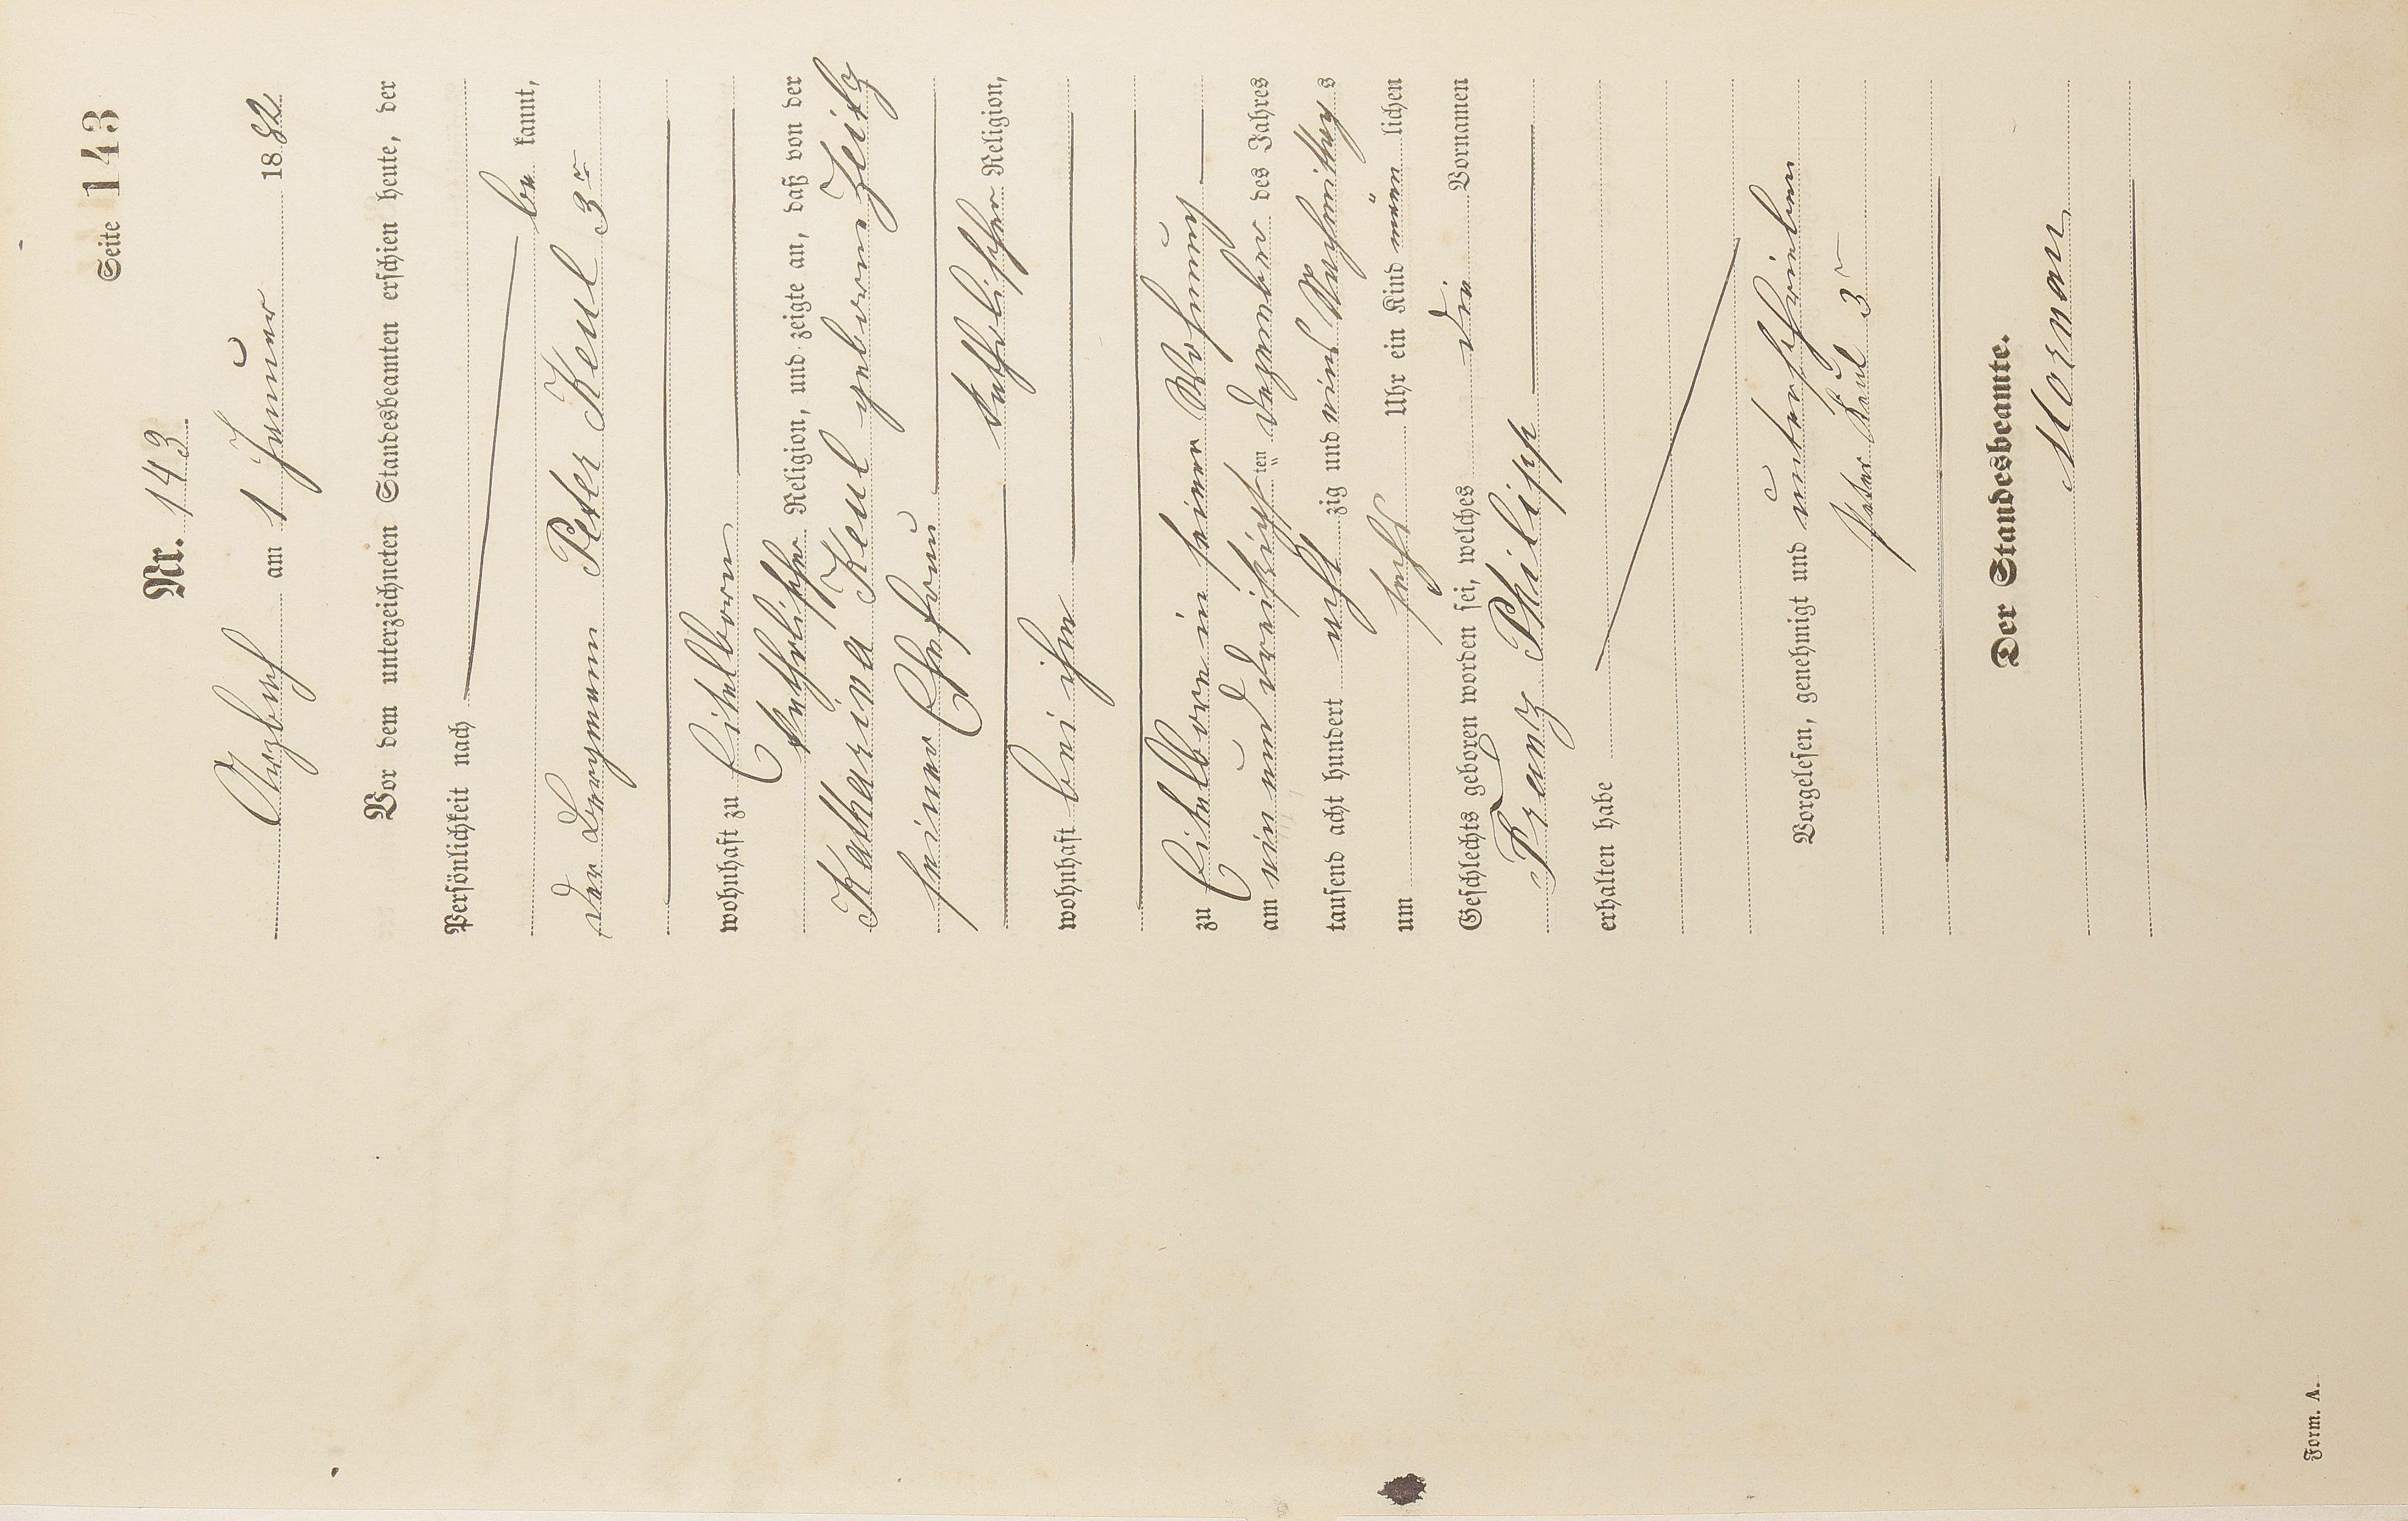 Seite 143
Nr. 143
Arzbach am 1 Januar 1882
Vor dem unterzeichneten Standesbeamten erschien heute, der
Persönlichkeit nach
be kannt,
der Bergmann Peter Keul 3r
wohnhaft zu Eitelborn
katholischer Religion, und zeigte an, daß von der
Katharina Keul geborene Zeitz
seiner Ehefrau
katholischer Religion,
wohnhaft bei ihm
zu Eitelborn in seiner Wohnung
am ein und dreißigsten Dezember des Jahres
tausend acht hundert acht zig und eins Nachmittags
um sechs Uhr ein Kind männ lichen
Geschlechts geboren worden sei, welches die Vornamen
Franz Philipp
erhalten habe
Vorgelesen, genehmigt und unterschrieben
Peter Keul 3r
Der Standesbeamte.
Form. A.